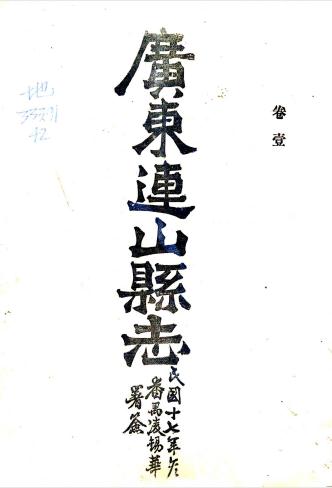 卷壹
廣東連山縣志
民國十七年冬
番禺凌錫華
署簽
地